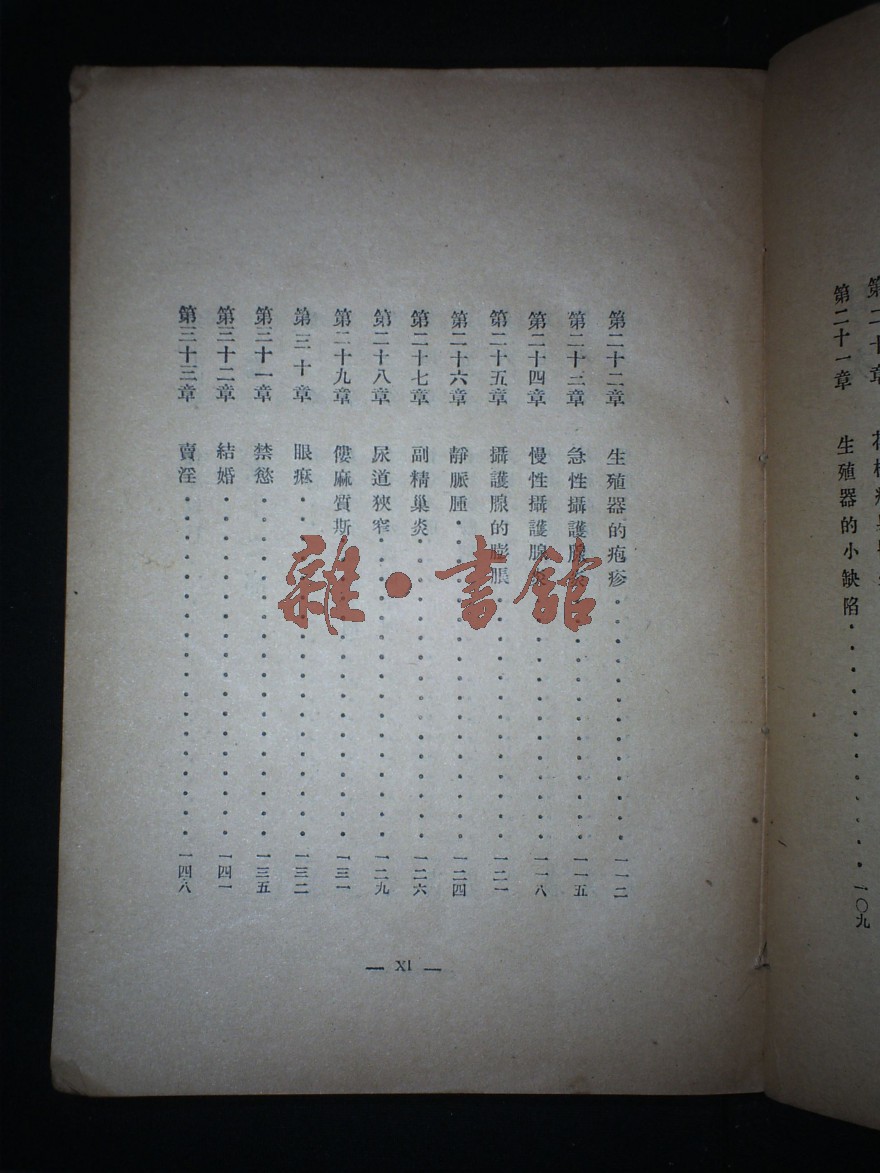 第二十一章 生殖器的小缺陷 一〇九
第二十二章 生殖器的疱疹 一一二
第二十三章 急性攝護腺炎 一一五
第二十四章 慢性攝護腺炎 一一八
第二十五章 攝護腺的膨脹 一二一
第二十六章 靜脈腫 一二四
第二十七章 副精巢炎 一二六
第二十八章 尿道狹窄 一二九
第二十九章 僂麻質斯 一三一
第三十章 眼痳 一三二
第三十一章 禁慾 一三五
第三十二章 結婚 一四一
第三十三章 賣淫 一四八
— XI —
雜·書館